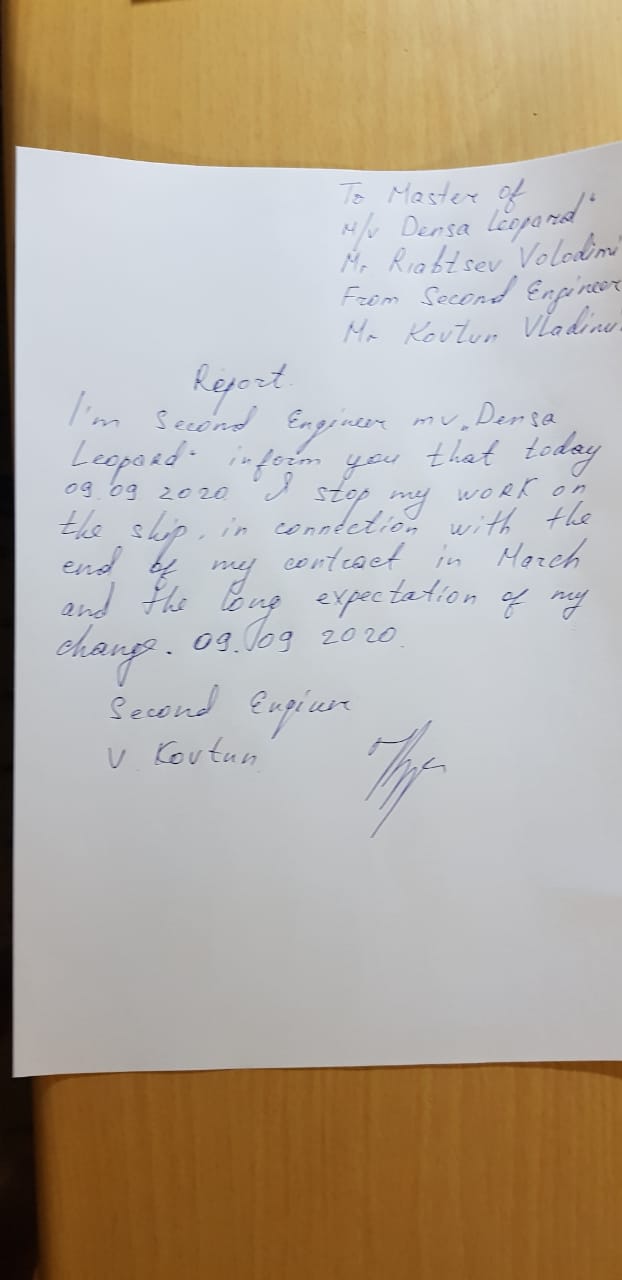 To Master of
M/v Densa Leopard“
Mr Riabtsev Volodimi
From Second Engineer
Mr Kovtun Vladimi
Report.
I'm Second Engineer mv „Densa
Leopard“ inform you that today
09.09 2020 I stop my work on
the ship, in connection with the
end of my contract in March
and the long expectation of my
change. 09.09 2020.
Second Engiure
V Kovtun